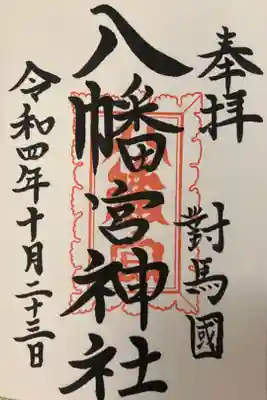 奉拝
對馬國
八幡宮神社
令和四年十月二十三日